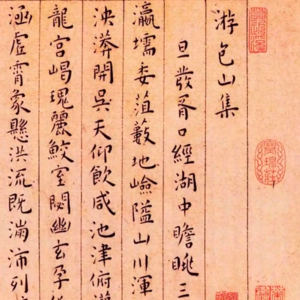 游包山集
旦發胥口經湖中瞻眺三
瀛壖委菹藪地嶮隘山川渾
泱漭開吳天仰飲咸池津俯
龍宮嵑瑰麗鮫室閟幽玄孕
涵虛霄象懸洪流既滿沛列